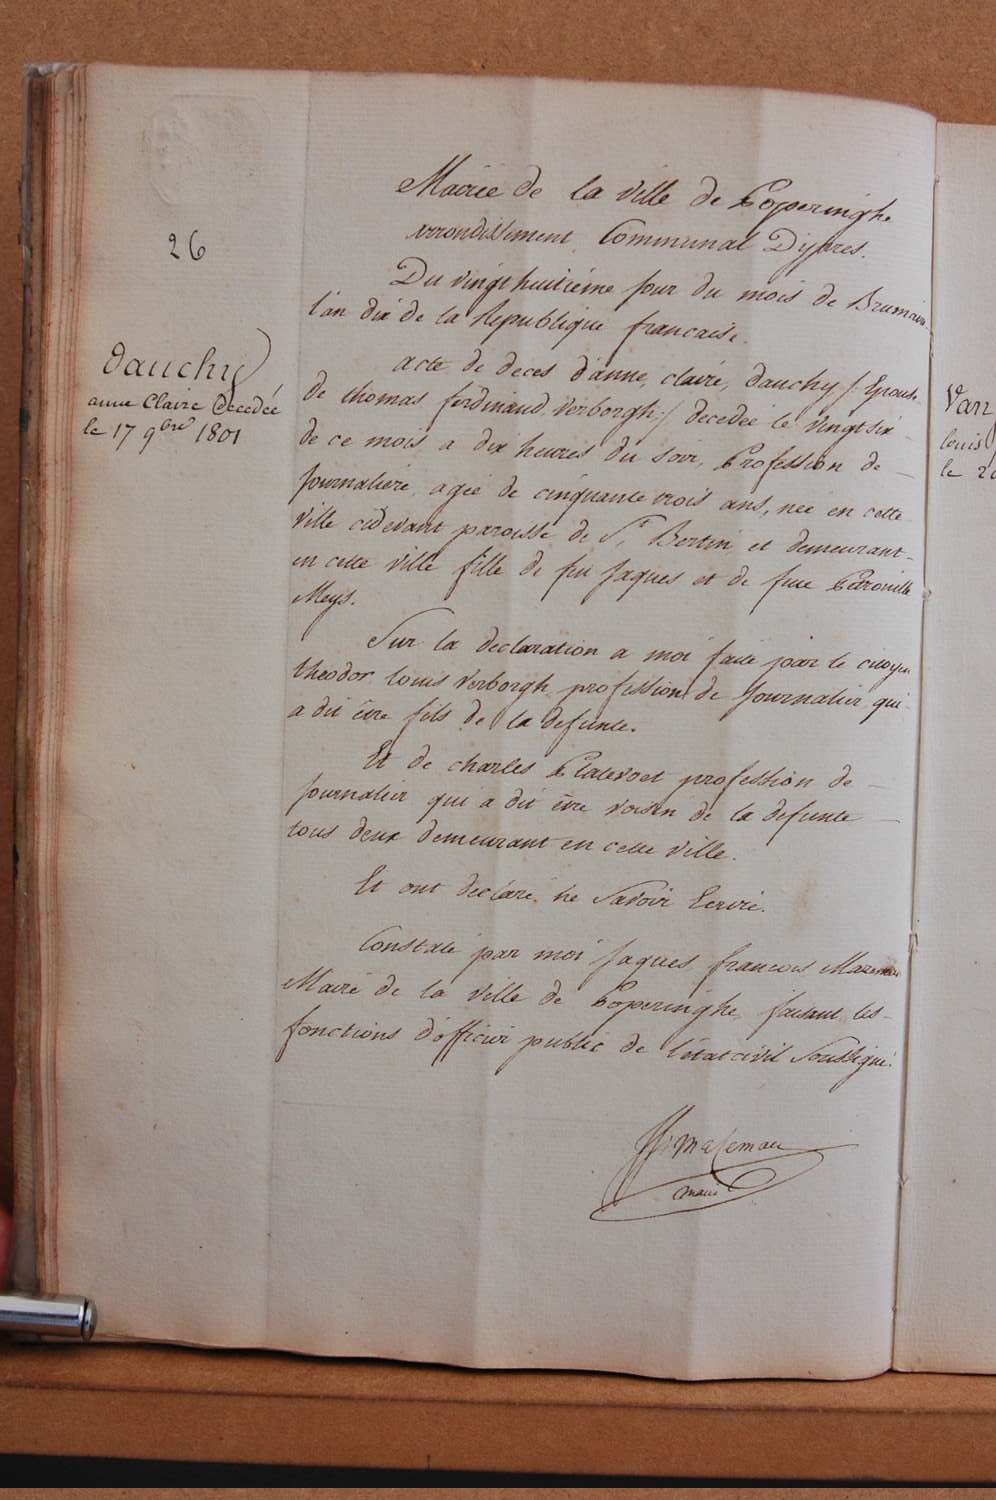 26
dauchy
anne Claire Decedée
le 17 9bre 1801
Mairie de la ville de Poperinghe
arrondissement Communal Dijpres.
Du vingt huitieme jour du mois de Brumaire
l'an dix de la Republique francaise.
acte de deces d'anne, claire, dauchy /: Epouse
de thomas ferdinand Verborgh :/ decedée le vingt six
de ce mois a dix heures du soir, Profession de
journaliere, agée de cinquante trois ans, née en cette
ville cidevant paroisse de St Bertin et demeurant
en cette ville fille de feu Jaques et de feue Petronille
Meys.
Sur la declaration a moi faite par le citoyen
theodor louis Verborgh profession de journalier qui
a dit être fils de la defunte.
Et de charles Platevoet profession de
journalier qui a dit être voisin de la defunte
tous deux demeurant en cette ville.
Et ont declaré ne savoir Ecrire.
Constaté par moi Jaques francois Mazeman
Maire de la ville de Poperinghe, faisant les
fonctions d'officier public de l'état civil soussigné.
Mazeman
maire
Van
louis
le 2